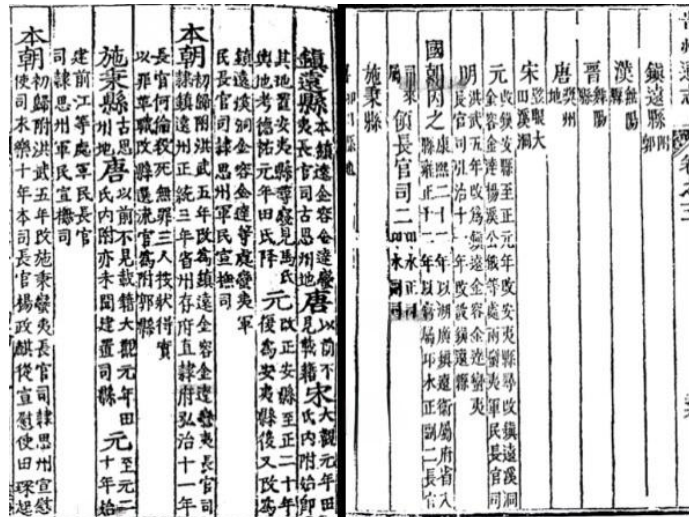 鎮遠縣附郭
漢無陽縣
晉舞陽縣
唐奬州
宋竪眼大田溪洞
元改鎮安縣至正元年改安夷縣尋改鎮遠溪洞金容金達楊溪公俄等處兩蠻夷軍民長官司
明洪武五年改爲鎮遠金容金達蠻夷長官司弘治十一年改設鎮遠縣
國朝因之康熙二十一年以湖廣鎮遠衛屬府省入縣雍正十一年以舊屬邛水正副二長官司來屬領長官司二邛水正司邛水副司
施秉縣
鎮遠縣本鎮遠金容金達蠻夷長官司古思州地唐以前不見載籍宋大觀元年田氏內附始卽
其地置安夷縣尋廢見馬氏輿地考德祐元年田氏降元改正安縣至正二十年復爲安夷縣後又改爲
鎮遠溪洞金容金達等處蠻夷軍民長官司隸思州軍民宣撫司
本朝初歸附洪武五年改爲鎮遠金容金達蠻夷長官司隸鎮遠州正統三年省州存府直隸府弘治十一年
長官何倫殺死無罪三人狀得實以罪革職改縣選流官爲附郭縣
施秉縣古思州地唐以前不見載籍大觀元年田氏內附亦未聞建置司縣元至元二十年始
建前江等處軍民長官司隸思州軍民宣撫司
本朝初歸附洪武五年改施秉蠻夷長官司隸思州宣慰使司永樂十年本司長官楊政麒從宣慰使田琛起